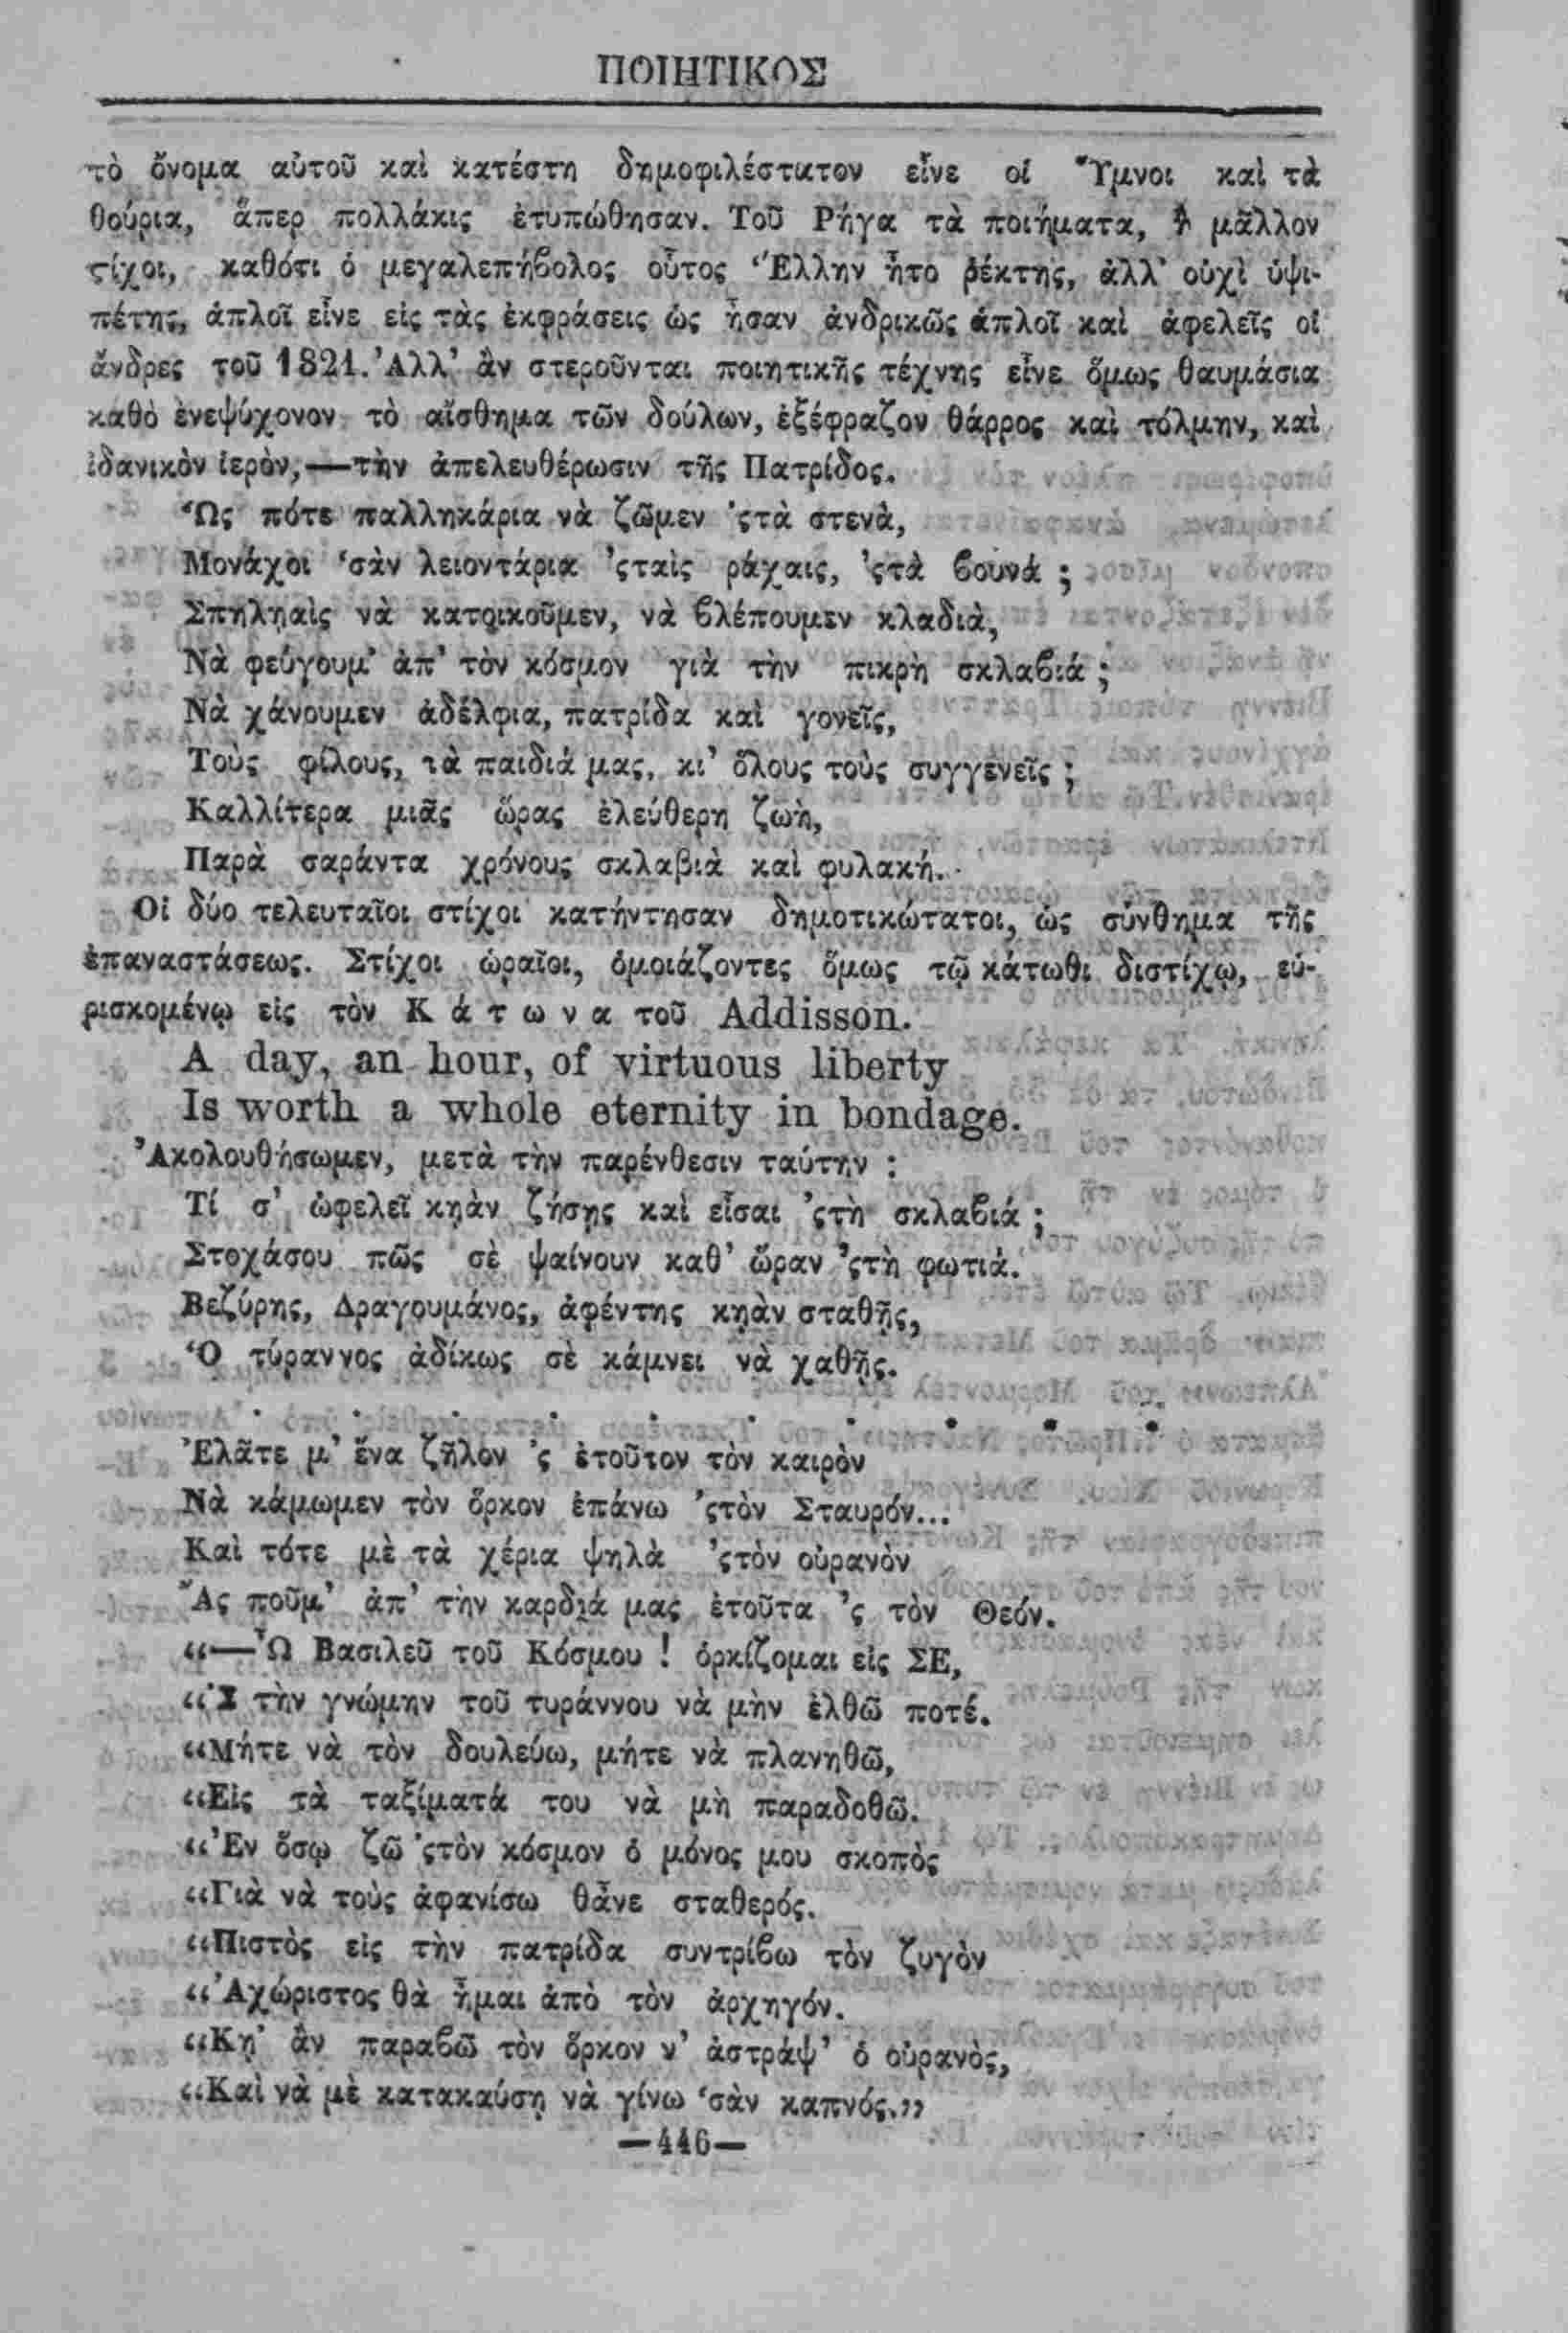 ΠΟΙΗΤΙΚΟΣ
τὸ ὄνομα αὐτοῦ καὶ κατέστη δημοφιλέστατον εἶνε οἱ Ὕμνοι καὶ τὰ
θούρια, ἅπερ πολλάκις ἐτυπώθησαν. Τοῦ Ρήγα τὰ ποιήματα, ἢ μᾶλλον
στίχοι, καθότι ὁ μεγαλεπήβολος οὗτος Ἕλλην ἦτο ῥέκτης, ἀλλ' οὐχὶ ὑψι-
πέτης, ἁπλοῖ εἶνε εἰς τὰς ἐκφράσεις ὡς ἦσαν ἀνδρικῶς ἁπλοῖ καὶ ἀφελεῖς οἱ
ἄνδρες τοῦ 1821. Ἀλλ' ἂν στεροῦνται ποιητικῆς τέχνης εἶνε ὅμως θαυμάσια
καθὸ ἐνεψύχονον τὸ αἴσθημα τῶν δούλων, ἐξέφραζον θάρρος καὶ τόλμην, καὶ
ἰδανικὸν ἱερὸν,—τὴν ἀπελευθέρωσιν τῆς Πατρίδος.
Ὡς πότε παλληκάρια νὰ ζῶμεν 'ςτὰ στενὰ,
Μονάχοι 'σὰν λειοντάρια 'ςταὶς ράχαις, 'ςτὰ βουνά ;
Σπηληαὶς νὰ κατοικοῦμεν, νὰ βλέπουμεν κλαδιὰ,
Νὰ φεύγουμ' ἀπ' τὸν κόσμον γιὰ τὴν πικρὴ σκλαβιά ;
Νὰ χάνουμεν ἀδέλφια, πατρίδα καὶ γονεῖς,
Τοὺς φίλους, τὰ παιδιά μας, κι' ὅλους τοὺς συγγενεῖς ;
Καλλίτερα μιᾶς ὥρας ἐλεύθερη ζωὴ,
Παρὰ σαράντα χρόνους σκλαβιὰ καὶ φυλακή.
Οἱ δύο τελευταῖοι στίχοι κατήντησαν δημοτικώτατοι, ὡς σύνθημα τῆς
ἐπαναστάσεως. Στίχοι ὡραῖοι, ὁμοιάζοντες ὅμως τῷ κάτωθι διστίχῳ, εὑ-
ρισκομένῳ εἰς τὸν Κ ά τ ω ν α τοῦ Addisson.
A day, an hour, of virtuous liberty
Is worth a whole eternity in bondage.
Ἀκολουθήσωμεν, μετὰ τὴν παρένθεσιν ταύτην :
Τί σ' ὠφελεῖ κῃὰν ζήσῃς καὶ εἶσαι 'ςτὴ σκλαβιά ;
Στοχάσου πῶς σὲ ψαίνουν καθ' ὥραν 'ςτὴ φωτιά.
Βεζύρης, Δραγουμάνος, ἀφέντης κῃὰν σταθῇς,
Ὁ τύραννος ἀδίκως σὲ κάμνει νὰ χαθῇς.
. . . . . . . . . .
Ἐλᾶτε μ' ἕνα ζῆλον 'ς ἐτοῦτον τὸν καιρὸν
Νὰ κάμωμεν τὸν ὅρκον ἐπάνω 'ςτὸν Σταυρόν...
Καὶ τότε μὲ τὰ χέρια ψηλὰ 'ςτὸν οὐρανὸν
Ἂς ποῦμ' ἀπ' τὴν καρδιά μας ἐτοῦτα 'ς τὸν Θεόν.
“—Ὦ Βασιλεῦ τοῦ Κόσμου ! ὁρκίζομαι εἰς ΣΕ,
“'Σ τὴν γνώμην τοῦ τυράννου νὰ μὴν ἐλθῶ ποτέ.
“Μήτε νὰ τὸν δουλεύω, μήτε νὰ πλανηθῶ,
“Εἰς τὰ ταξίματά του νὰ μὴ παραδοθῶ.
“Ἐν ὅσῳ ζῶ 'ςτὸν κόσμον ὁ μόνος μου σκοπὸς
“Γιὰ νὰ τοὺς ἀφανίσω θἆνε σταθερός.
“Πιστὸς εἰς τὴν πατρίδα συντρίβω τὸν ζυγὸν
“Ἀχώριστος θὰ ἦμαι ἀπὸ τὸν ἀρχηγόν.
“Κῃ' ἂν παραβῶ τὸν ὅρκον ν' ἀστράψ' ὁ οὐρανὸς,
“Καὶ νὰ μὲ κατακαύσῃ νὰ γίνω 'σὰν καπνός.”
—446—